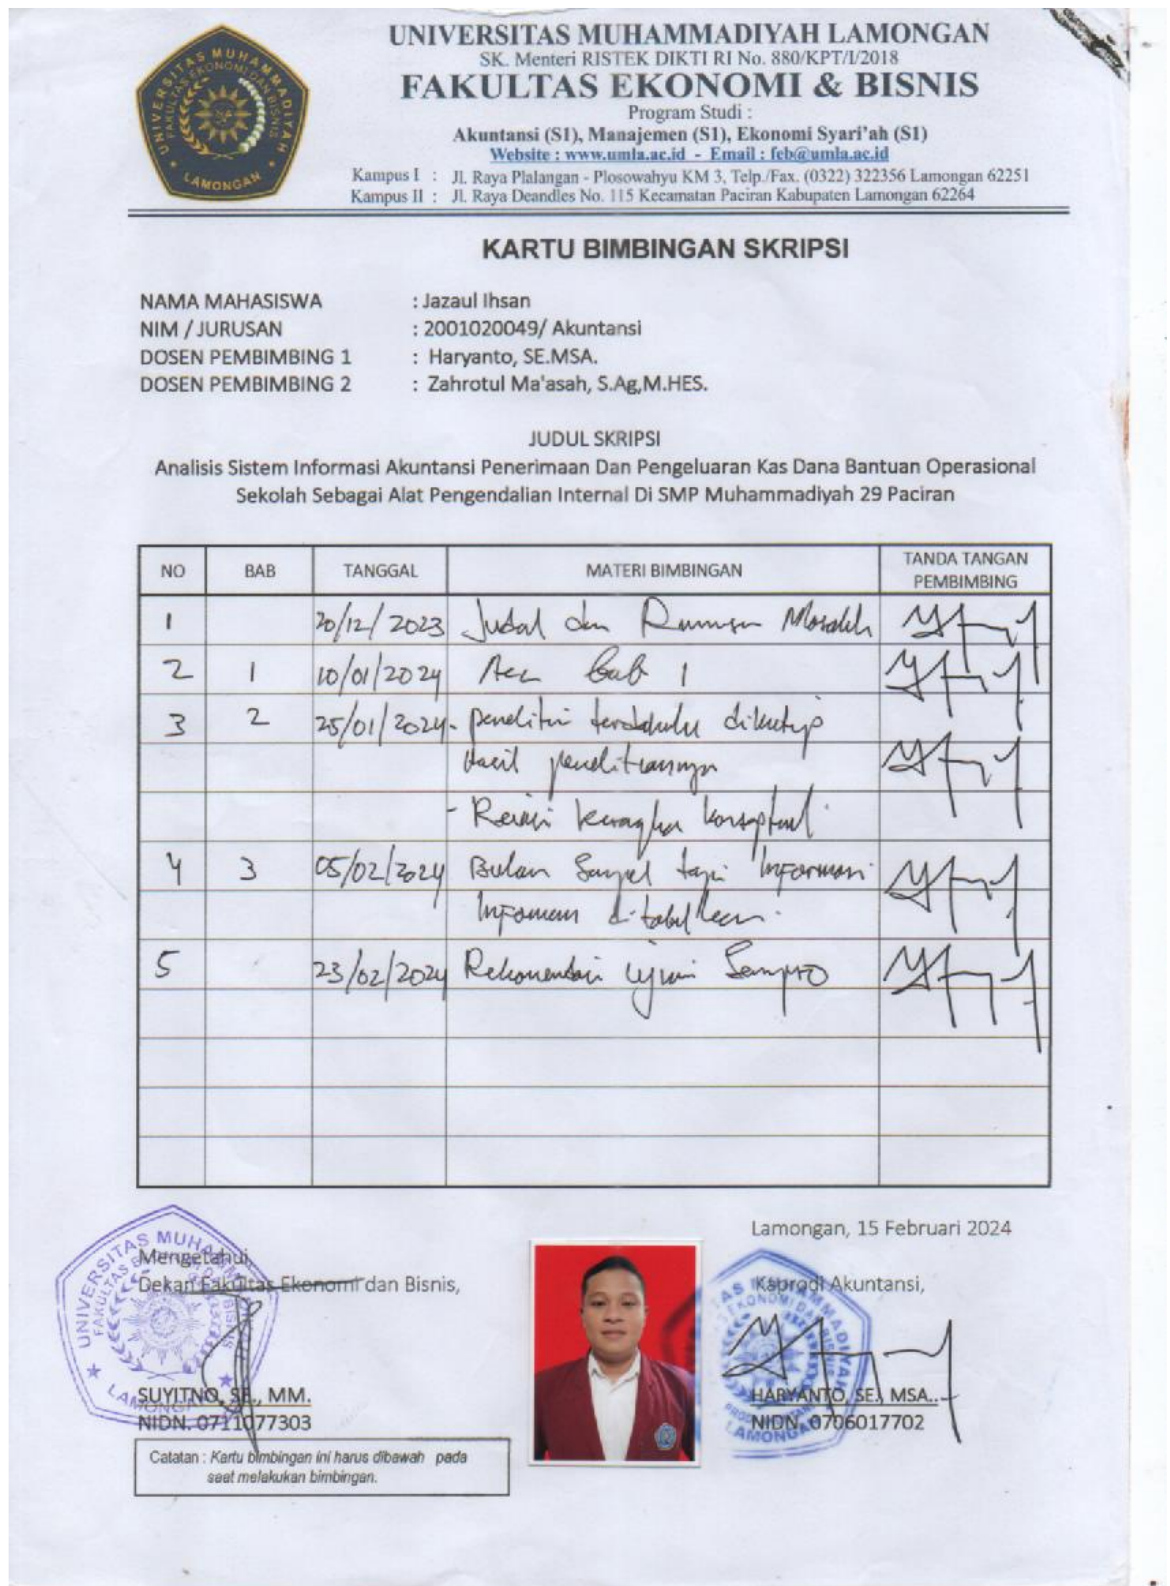 UNIVERSITAS MUHAMMADIYAH LAMONGAN
SK. Menteri RISTEK DIKTI RI No. 880/KPT/I/2018
FAKULTAS EKONOMI & BISNIS
Program Studi :
Akuntansi (S1), Manajemen (S1), Ekonomi Syari'ah (S1)
Website : www.umla.ac.id - Email : feb@umla.ac.id
Kampus I : Jl. Raya Plalangan - Plosowahyu KM 3, Telp./Fax. (0322) 322356 Lamongan 62251
Kampus II : Jl. Raya Deandles No. 115 Kecamatan Paciran Kabupaten Lamongan 62264
UNIVERSITAS MUHAMMADIYAH
FAKULTAS EKONOMI DAN BISNIS
LAMONGAN
KARTU BIMBINGAN SKRIPSI
NAMA MAHASISWA : Jazaul Ihsan
NIM / JURUSAN : 2001020049/ Akuntansi
DOSEN PEMBIMBING 1 : Haryanto, SE.MSA.
DOSEN PEMBIMBING 2 : Zahrotul Ma'asah, S.Ag,M.HES.
JUDUL SKRIPSI
Analisis Sistem Informasi Akuntansi Penerimaan Dan Pengeluaran Kas Dana Bantuan Operasional
Sekolah Sebagai Alat Pengendalian Internal Di SMP Muhammadiyah 29 Paciran
NO BAB TANGGAL MATERI BIMBINGAN TANDA TANGAN PEMBIMBING
1 20/12/2023 Judul dan Rumusan Masalah
2 1 10/01/2024 Acc Bab 1
3 2 25/01/2024 - penelitian terdahulu dikutip
Hasil penelitiannya
- Revisi kerangka konseptual
4 3 05/02/2024 Bukan Sampel tapi Informan
Informan ditabelkan.
5 23/02/2024 Rekomendasi ujian Sempro
Lamongan, 15 Februari 2024
Mengetahui,
Dekan Fakultas Ekonomi dan Bisnis,
Kaprodi Akuntansi,
SUYITNO, SE., MM.
NIDN. 0711077303
HARYANTO, SE., MSA..
NIDN. 0706017702
Catatan : Kartu bimbingan ini harus dibawah pada
saat melakukan bimbingan.